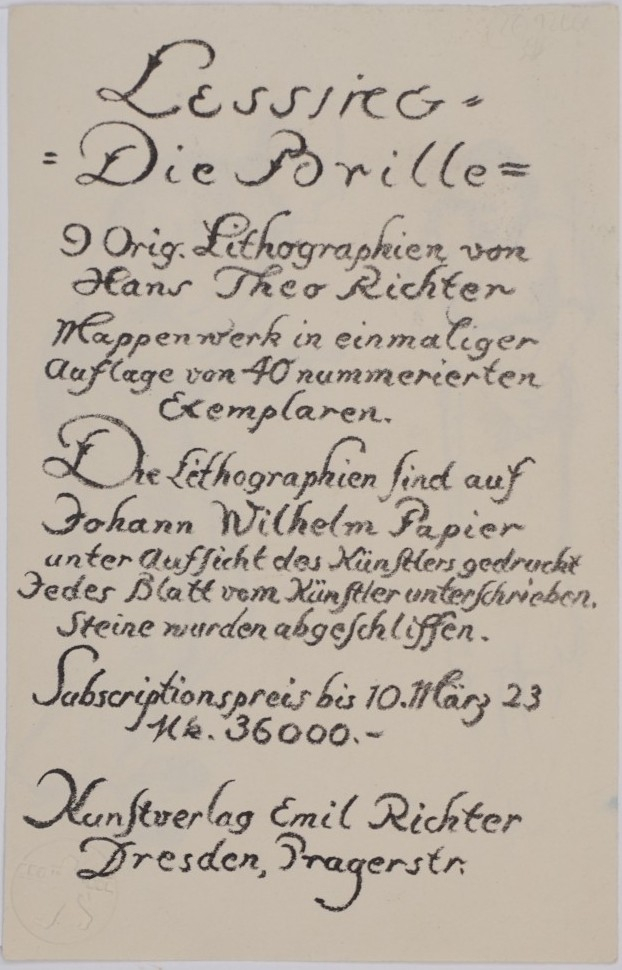 Lessing-
=Die Brille=
9 Orig. Lithographien von
Hans Theo Richter
Mappenwerk in einmaliger
Auflage von 40 nummerierten
Exemplaren.
Die Lithographien sind auf
Johann Wilhelm Papier
unter Aufsicht des Künstlers gedruckt
Jedes Blatt vom Künstler unterschrieben.
Steine wurden abgeschliffen.
Subscriptionspreis bis 10. März 23
Mk. 36000.-
Kunstverlag Emil Richter
Dresden, Pragerstr.